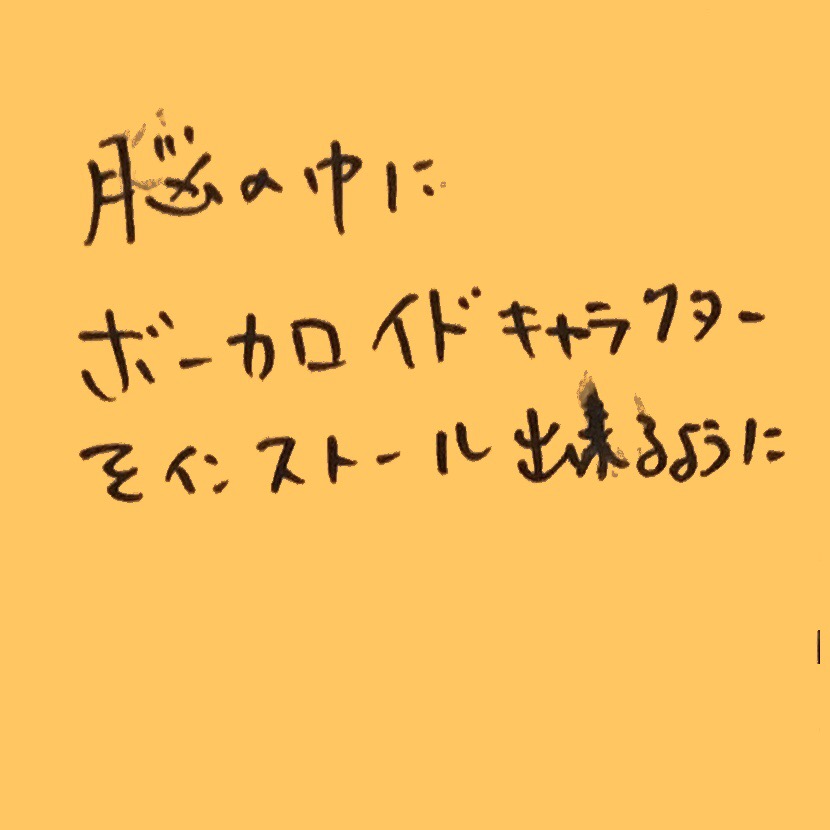 脳の中に
ボーカロイドキャラクター
をインストール出来るように